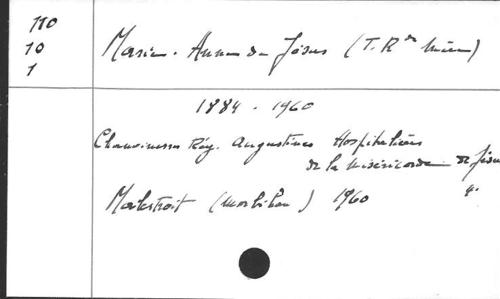 110
10
1
Marie-Anne de Jésus (T. Rde Mère)
1884 - 1960
Chanoinesses Rég. Augustines Hospitalières
de la Miséricorde de Jésus
Malestroit (Morbihan) 1960 4°